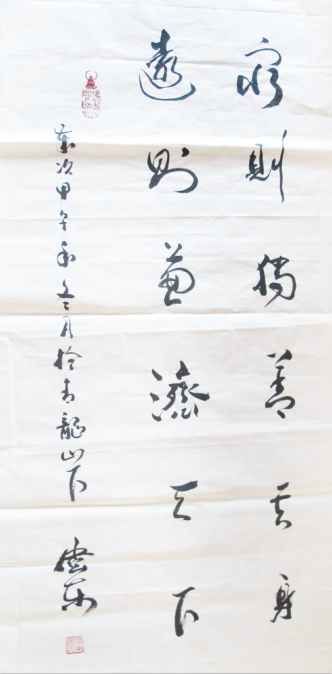 窮則獨善其身
達則兼濟天下
歲次甲午年冬月於青龍山下